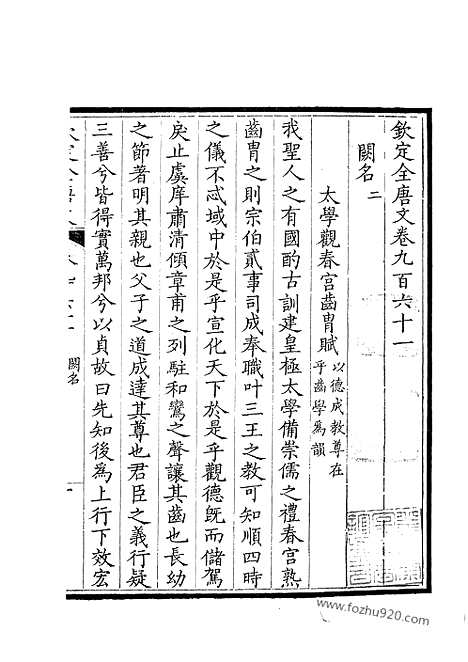 欽定全唐文卷九百六十一
闕名二
太學觀春宮齒胄賦以德成教尊在
乎齒學為韻
我聖人之有國酌古訓建皇極太學備崇儒之禮春宮熟
齒胄之則宗伯貳事司成奉職叶三王之教可知順四時
之儀不忒域中於是乎宣化天下於是乎觀德旣而儲駕
戾止虞庠肅清傾章甫之列駐和鸞之聲讓其齒也長幼
之節著明其親也父子之道成達其尊也君臣之義行疑
三善兮皆得實萬邦兮以貞故曰先知後為上行下效宏
闕名
一
www.fozhu920.com